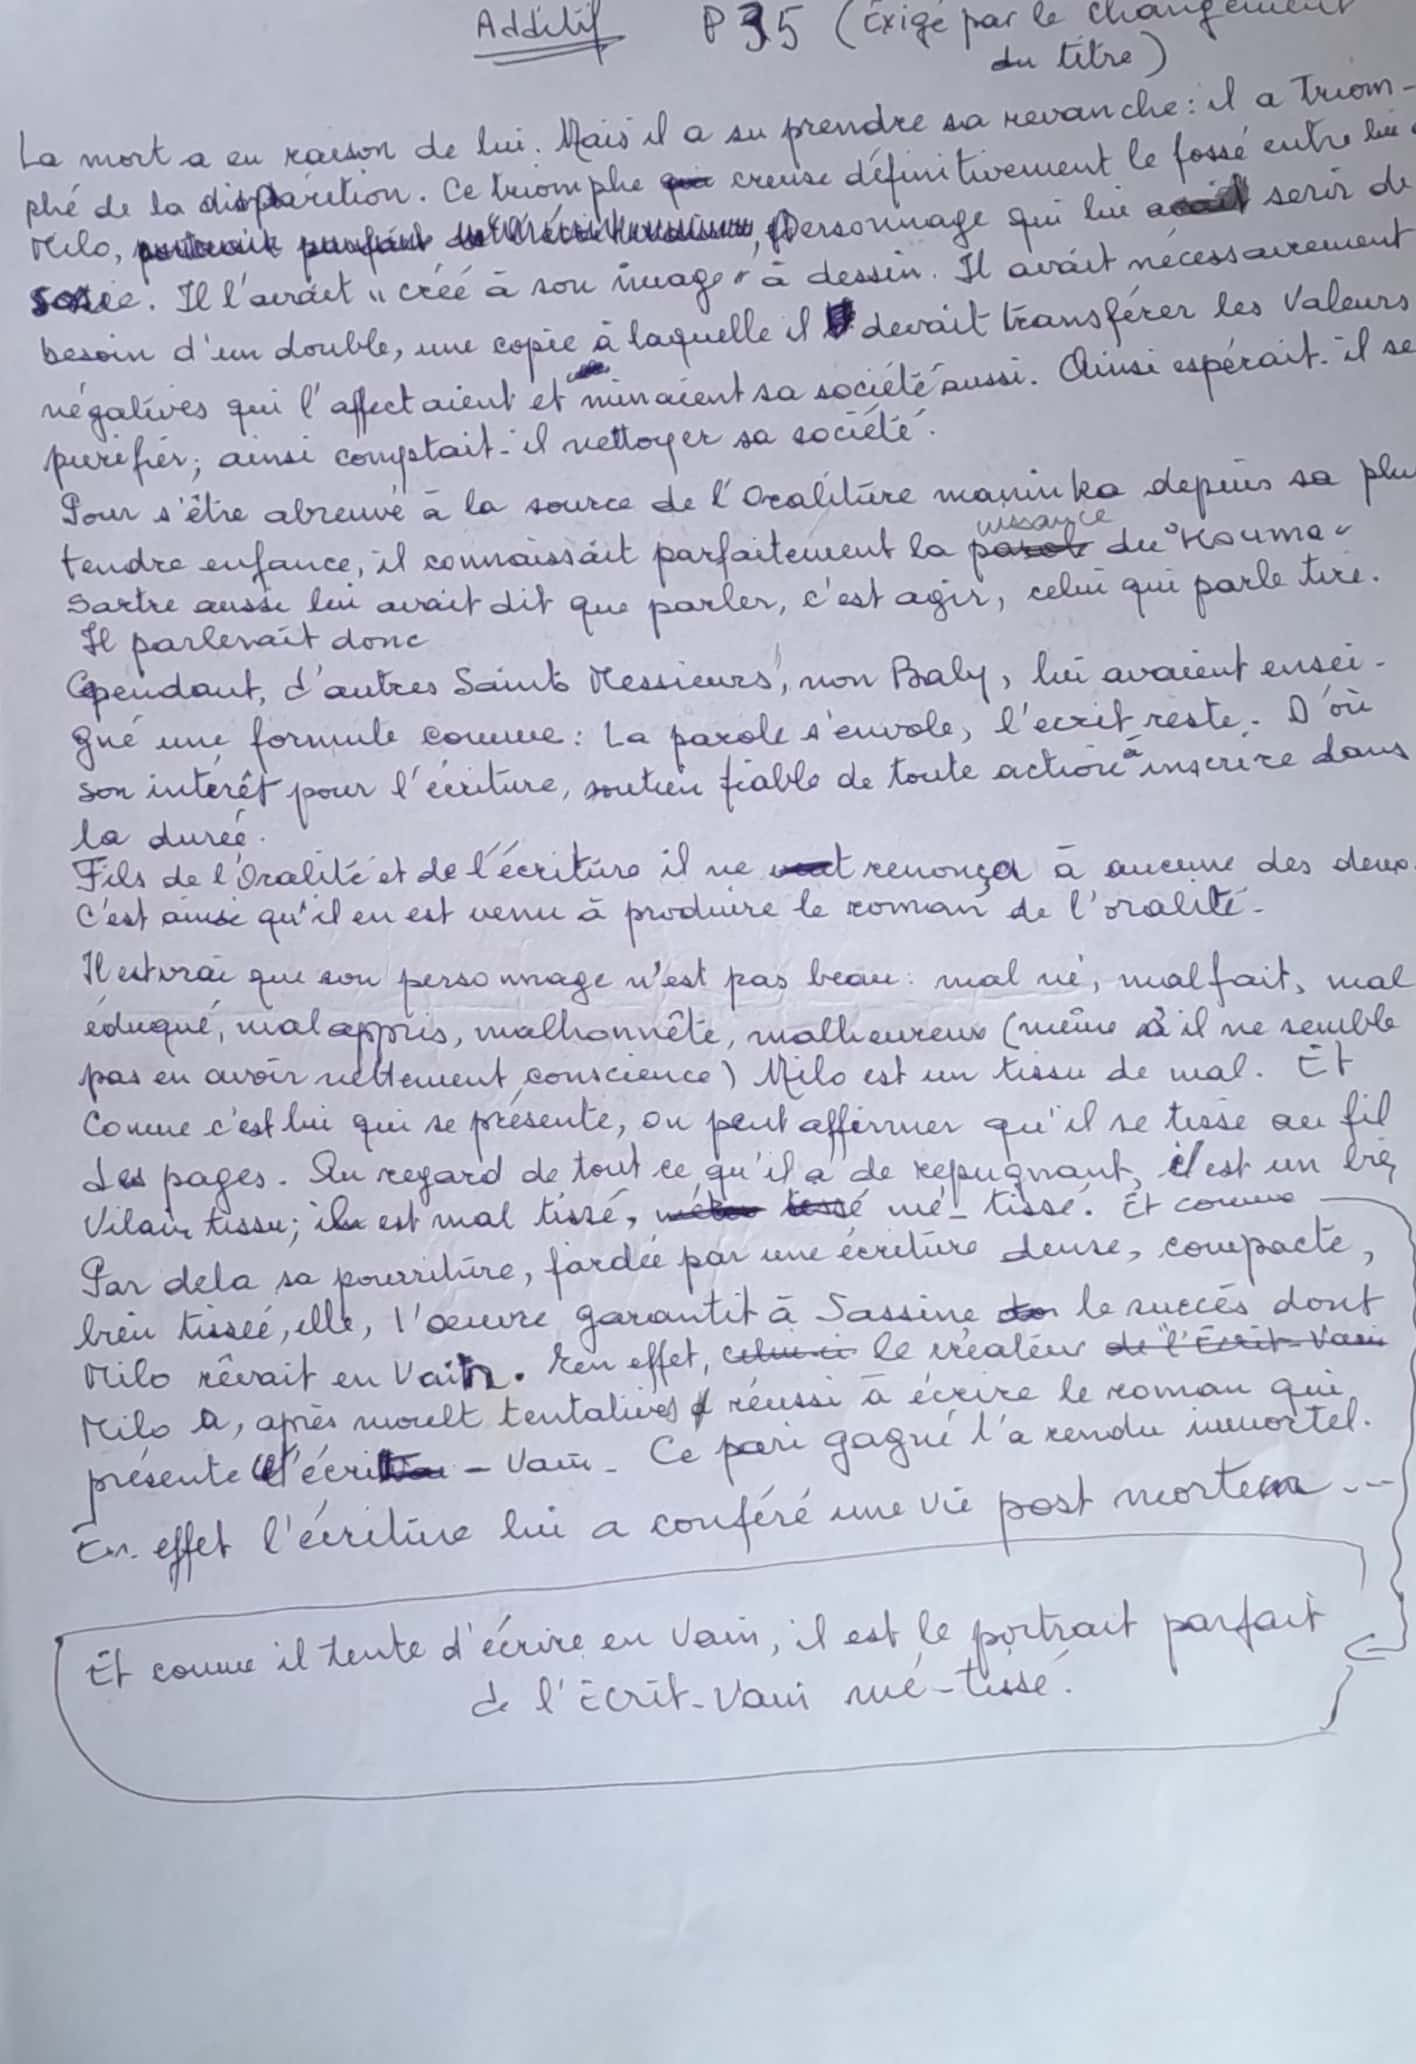 Additif P 35 (Exigé par le changement
du titre)
La mort a eu raison de lui. Mais il a su prendre sa revanche : il a triom-
phé de la disparition. Ce triomphe creuse définitivement le fossé entre lui
Milo, personnage qui lui servir de
. Il l'avait "créé à son image" à dessin. Il avait nécessairement
besoin d'un double, une copie à laquelle il devait transférer les Valeurs
négatives qui l'affectaient et minaient sa société aussi. Ainsi espérait-il se
purifier ; ainsi comptait-il nettoyer sa société.
Pour s'être abreuvé à la source de l'Oraliture maninka depuis sa plus
uissance
tendre enfance, il connaissait parfaitement la parole du "Kouma"
Sartre aussi lui avait dit que parler, c'est agir, celui qui parle tire.
Il parlerait donc
Cependant, d'autres Saints Messieurs, non Baly, lui avaient ensei-
gné une formule comme : La parole s'envole, l'ecrit reste. D'où
son intérêt pour l'écriture, soutien fiable de toute action à inscrire dans
la durée.
Fils de l'Oralité et de l'écriture il ne renonça à aucune des deux.
C'est ainsi qu'il en est venu à produire le roman de l'oralité.
Il est vrai que son personnage n'est pas beau : mal né, mal fait, mal
éduqué, mal appris, malhonnête, malheureux (même s'il ne semble
pas en avoir nettement conscience) Milo est un tissu de mal. Et
Comme c'est lui qui se présente, on peut affirmer qu'il se tisse au fil
des pages. Au regard de tout ce qu'il a de répugnant, il est un très
Vilain tissu ; il est mal tissé, tissé mé-tissé. Et comme
Par delà sa pourriture, fardée par une écriture dense, compacte,
bien tissée, elle, l'œuvre garantit à Sassine le succès dont
Milo rêvait en Vain. En effet, celui-ci le créateur de l'Ecrit-Vain
Milo a, après moult tentatives réussi à écrire le roman qui
présente l'écrit-Vain. Ce pari gagné l'a rendu immortel.
En effet l'écriture lui a conféré une vie post mortem ---
Et comme il tente d'écrire en Vain, il est le portrait parfait
de l'Ecrit-Vain mé-tissé.